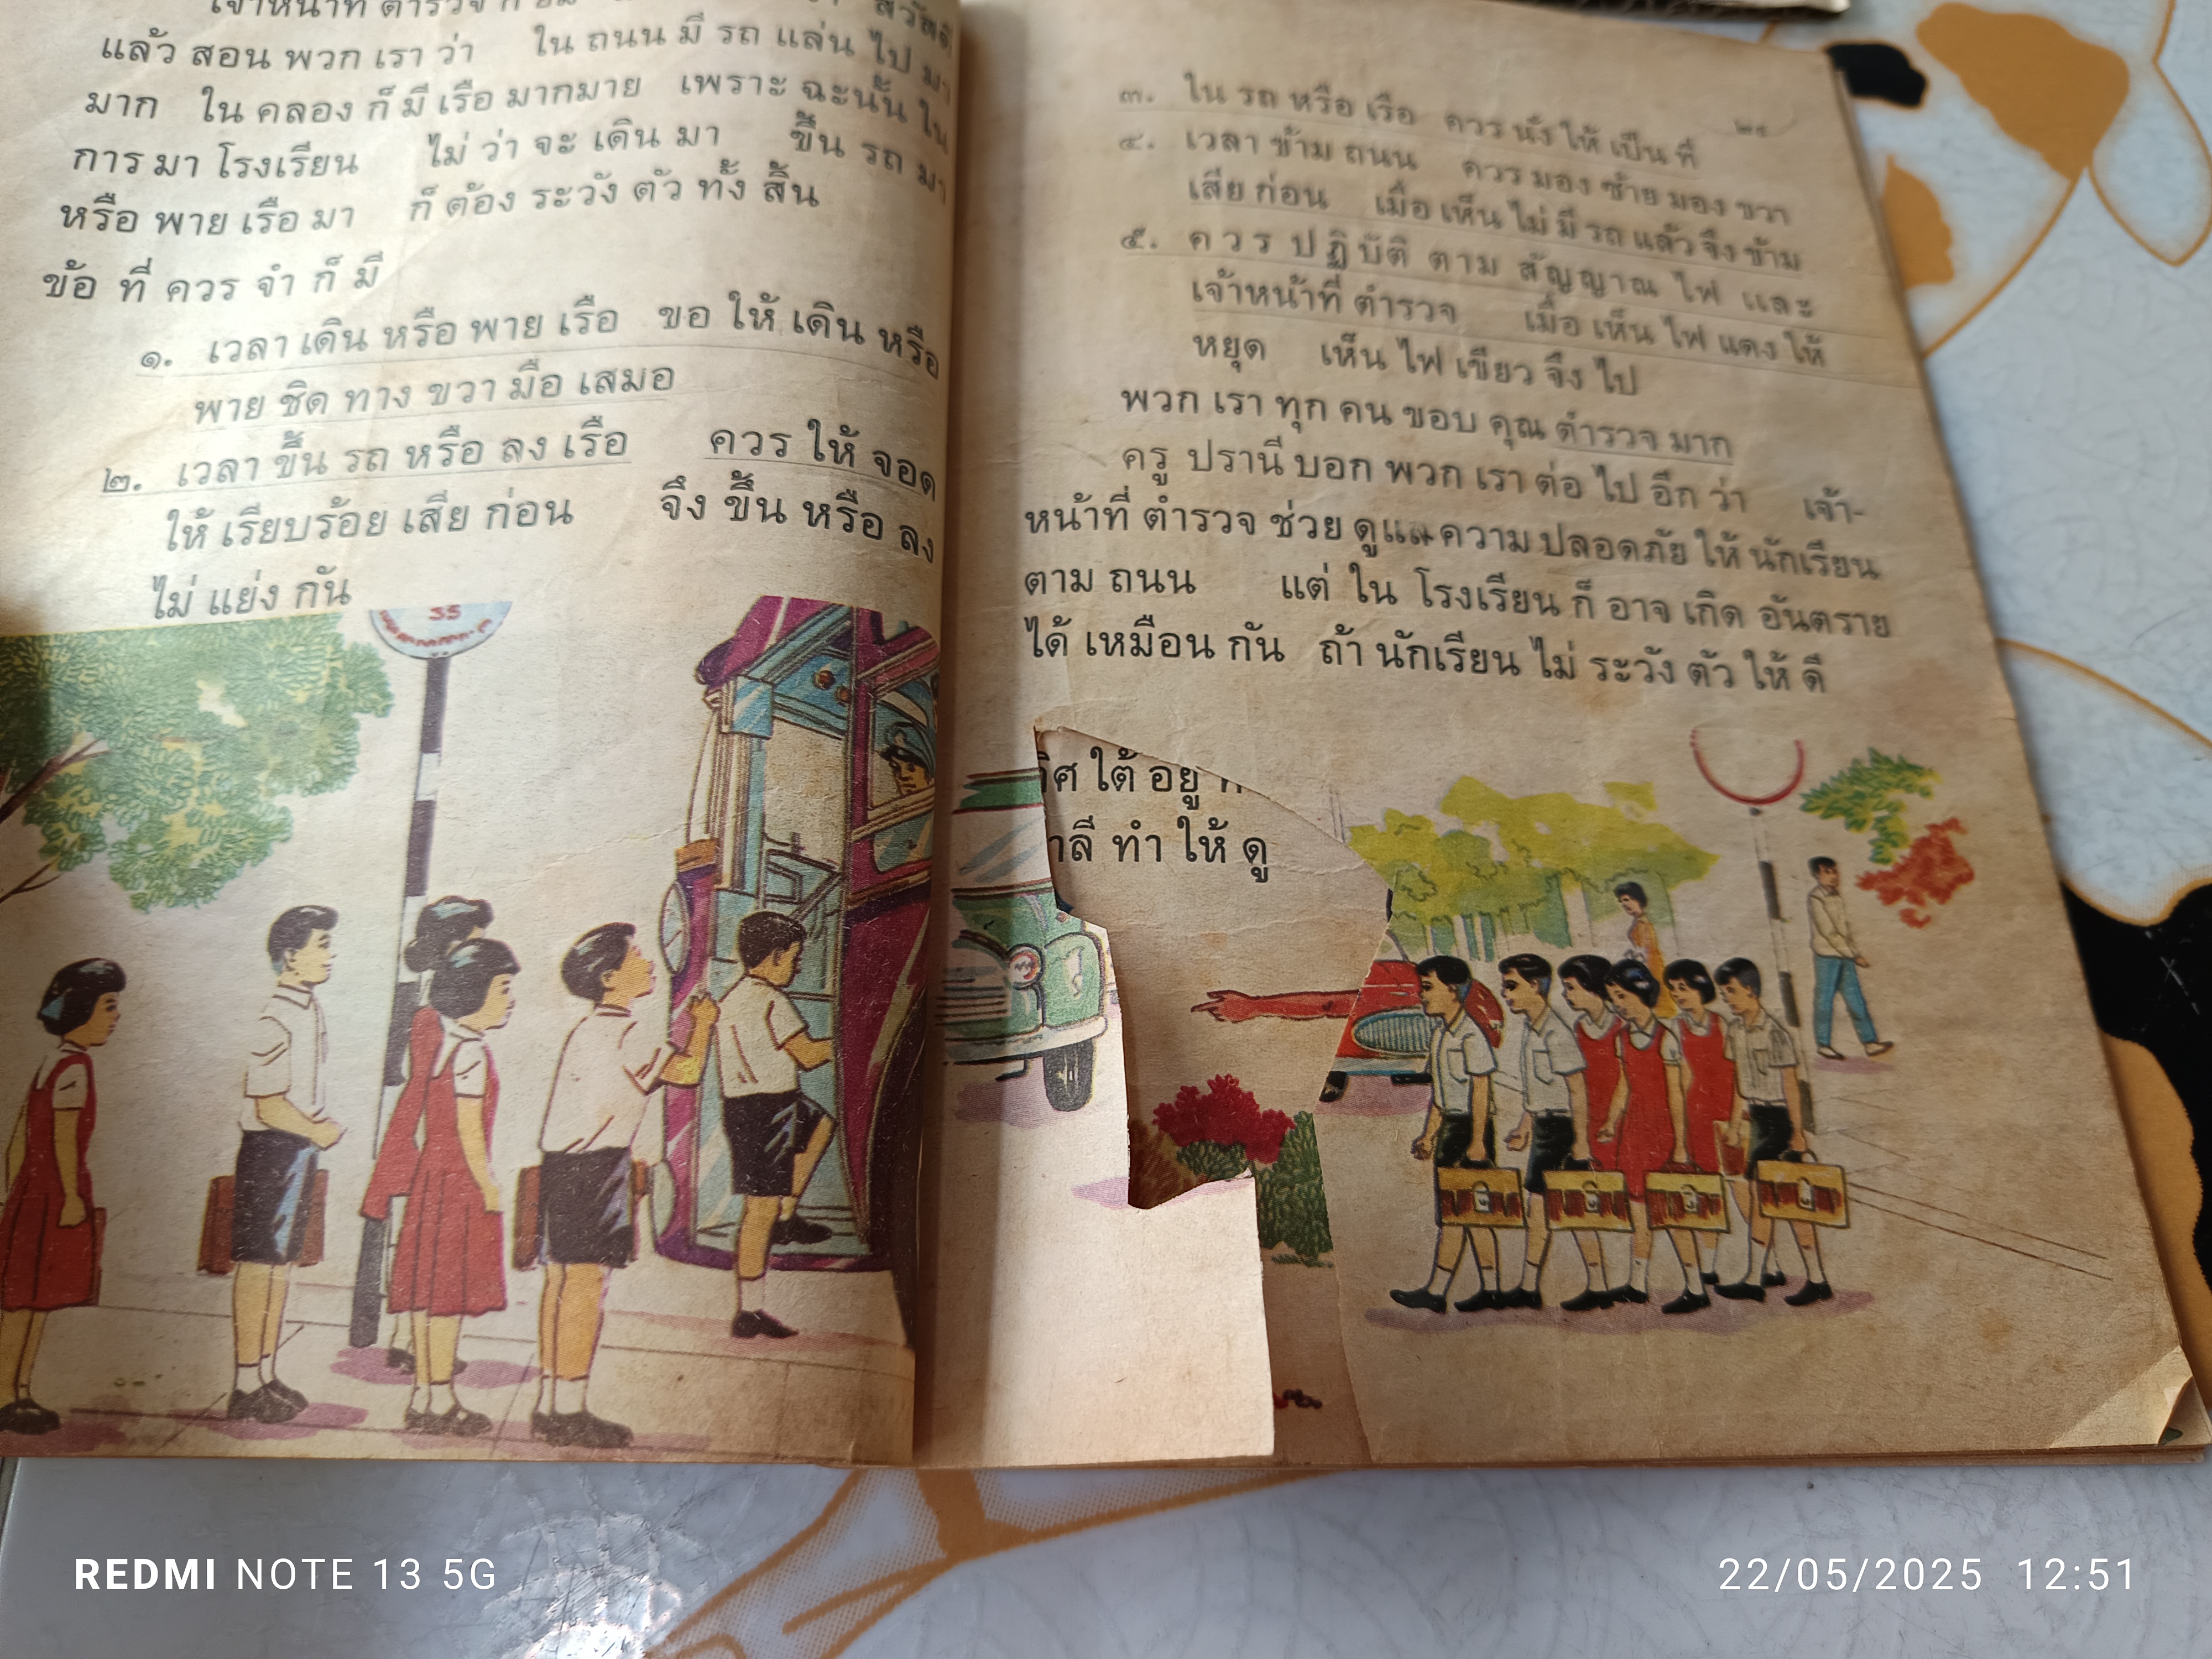 เจ้าหน้าที่ ตำรวจ ก็ ยิ้ม
แล้ว สอน พวก เรา ว่า ใน ถนน มี รถ แล่น ไป มา
มาก ใน คลอง ก็ มี เรือ มากมาย เพราะ ฉะนั้น ใน
การ มา โรงเรียน ไม่ ว่า จะ เดิน มา ขึ้น รถ มา
หรือ พาย เรือ มา ก็ ต้อง ระวัง ตัว ทั้ง สิ้น
ข้อ ที่ ควร จำ ก็ มี
๑. เวลา เดิน หรือ พาย เรือ ขอ ให้ เดิน หรือ
พาย ชิด ทาง ขวา มือ เสมอ
๒. เวลา ขึ้น รถ หรือ ลง เรือ ควร ให้ จอด
ให้ เรียบร้อย เสีย ก่อน จึง ขึ้น หรือ ลง
ไม่ แย่ง กัน
๓. ใน รถ หรือ เรือ ควร นั่ง ให้ เป็น ที่
๔. เวลา ข้าม ถนน ควร มอง ซ้าย มอง ขวา
เสีย ก่อน เมื่อ เห็น ไม่ มี รถ แล้ว จึง ข้าม
๕. ควร ปฏิบัติ ตาม สัญญาณ ไฟ และ
เจ้าหน้าที่ ตำรวจ เมื่อ เห็น ไฟ แดง ให้
หยุด เห็น ไฟ เขียว จึง ไป
พวก เรา ทุก คน ขอบ คุณ ตำรวจ มาก
ครู ปรานี บอก พวก เรา ต่อ ไป อีก ว่า เจ้า-
หน้าที่ ตำรวจ ช่วย ดูแลความ ปลอดภัย ให้ นักเรียน
ตาม ถนน แต่ ใน โรงเรียน ก็ อาจ เกิด อันตราย
ได้ เหมือน กัน ถ้า นักเรียน ไม่ ระวัง ตัว ให้ ดี
ใต้ อยู่
ทำ ให้ ดู
REDMI NOTE 13 5G
22/05/2025 12:51